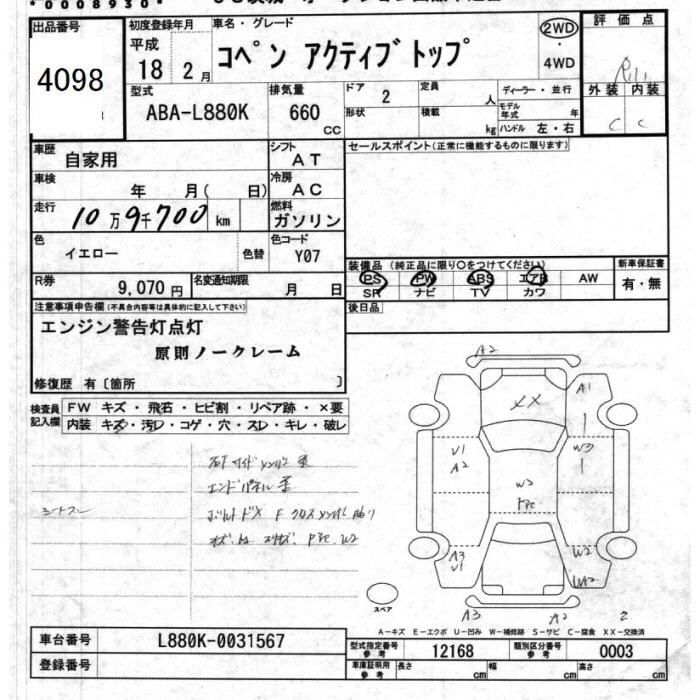 *0008930*
出品番号
4098
初度登録年月
平成
18 2月
車名・グレード
コペン アクティブトップ
2WD
・
4WD
評価点
外装 内装
C C
型式
ABA-L880K
排気量
660
CC
ドア 2
定員
人
形状
積載
kg
ディーラー・並行
モデル年式 年
ハンドル 左・右
車歴
自家用
シフト
AT
車検
年 月( 日)
冷房
AC
走行
10万9千700km
燃料
ガソリン
色
イエロー
色替
色コード
Y07
R券
9,070円
名変通知期限
月 日
セールスポイント(正常に機能するものに限ります)
装備品 (純正品に限り○をつけてください)
PS PW ABS エアB AW
SR ナビ TV カワ
新車保証書
有・無
後日品
注意事項申告欄(不具合内容等は具体的に記入して下さい)
エンジン警告灯点灯
原則ノークレーム
修復歴 有〔箇所 〕
検査員記入欄
FW キズ・飛石・ヒビ割・リペア跡・×要
内装 キズ・汚レ・コゲ・穴・スレ・キレ・破レ
エンドパネル
A2
A1
XX
U1
A2
W3
W2
A3
U1
W2
A3
A2
2
スペア
A-キズ E-エクボ U-凹み W-補修跡 S-サビ C-腐食 XX-交換済
車台番号
L880K-0031567
登録番号
型式指定番号
参考
12168
類別区分番号
参考
0003
車庫証明用
参考
長さ cm 幅 cm 高さ cm